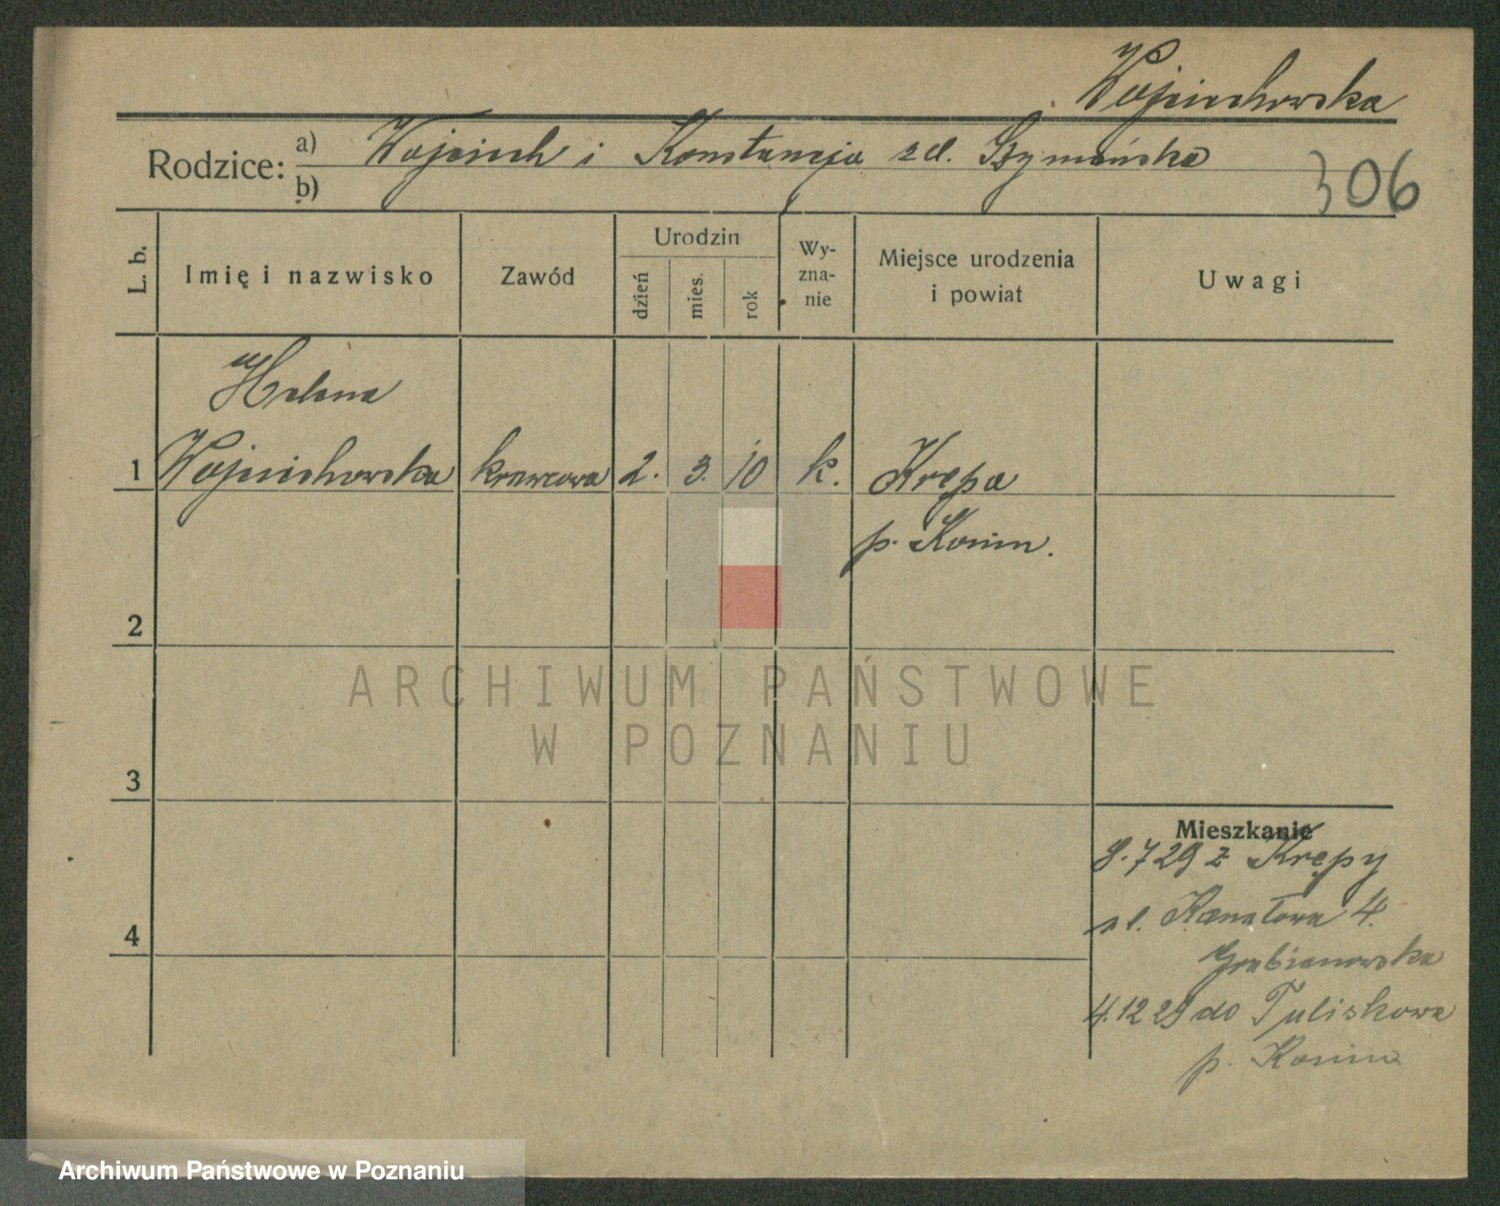 Wojciechowska
Rodzice: a) Wojciech i Konstancja z d. Szymańska
b)
306
L. b.
Imię i nazwisko
Zawód
Urodzin
dzień
mies.
rok
Wy-
zna-
nie
Miejsce urodzenia
i powiat
Uwagi
Helena
1 Wojciechowska krawcowa 2. 3. 10 k. Krępa
p. Konin.
2
3
4
Mieszkanie
8.7 29 z Krępy
ul. Kanałowa 4.
Grabianowska
4.12 29 do Tuliszkowa
p. Konin
ARCHIWUM PAŃSTWOWE
W POZNANIU
Archiwum Państwowe w Poznaniu